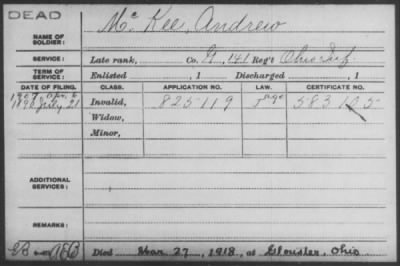 DEAD
Mc Kee, Andrew
NAME OF SOLDIER:
SERVICE: Late rank, Co. G, 141 Reg't Ohio Inf
TERM OF SERVICE: Enlisted , 1 Discharged , 1
DATE OF FILING. CLASS. APPLICATION NO. LAW. CERTIFICATE NO.
1907, Apr. 6
1890 July 21 Invalid, 825119 583105
Widow,
Minor,
ADDITIONAL SERVICES:
REMARKS:
Died Mar. 27, 1918, at Glouster, Ohio